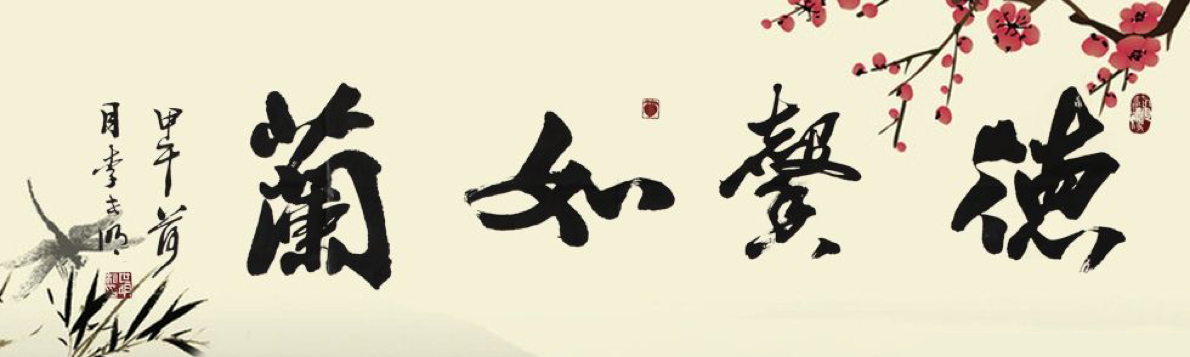 德馨如蘭
甲午荷
月李志明